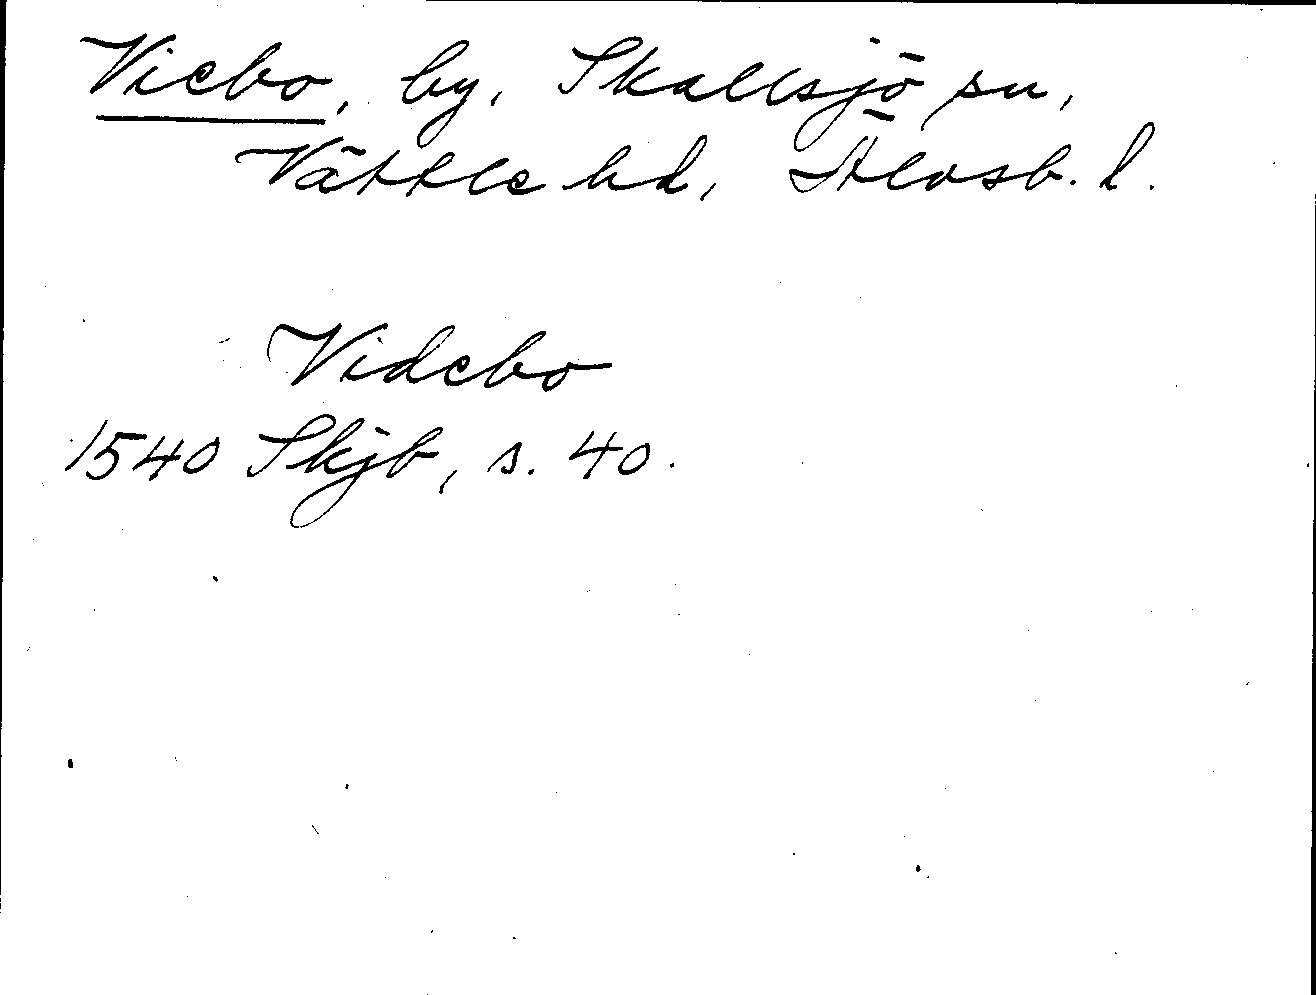 Viebo, by, Skallsjö sn,
Vättle hd, Älvsb. l.
Videbo
1540 Skjb, s. 40.